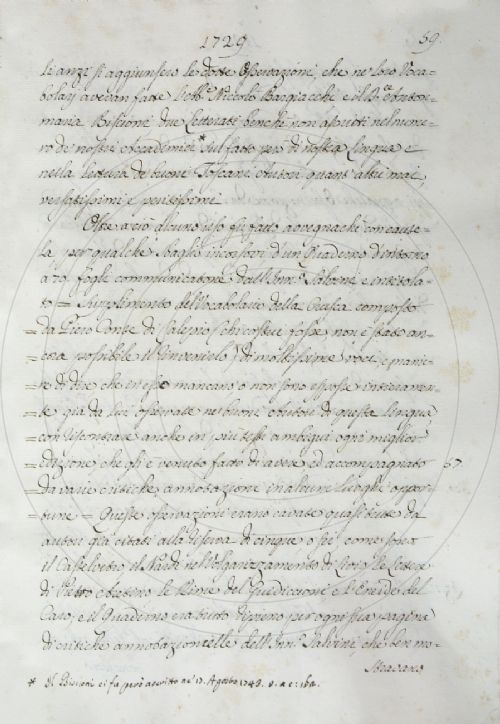 1729
59.
li anzi si aggiunsero le dotte Osservazioni, che ne' loro Voca-
bolarj avevan fatte l'Ab.e Niccolò Bargiacchi e il D.r Anton-
maria Biscioni due Letterati benchè non ascritti nel nume-
ro de' nostri Accademici * sul fatto però di nostra Lingua e
nella lettura de' buoni Toscani Autori quant' altri mai,
versatissimi e peritissimi
Oltre a ciò alcuno uso fu fatto avvegnachè con caute-
la per qualche sbaglio incorsovi d'un Quaderno d'intorno
a 70. fogli communicatone dall' Inn. Salvini e intitola-
to = Supplimento del Vocabolario della Crusca composto
= da Piero Conte di
= cora possibile il rinvenirlo) di moltissime voci, e manie-
= re di dire che in esso mancano o non sono esposte interamen-
= te già da lui osservate ne' buoni Autori di questa Lingua
= con riscontrare anche in più testi ambigui ogni miglior
= edizione che gli è venuto fatto di avere ed accompagnato
57.
= da varie critiche annotazioni in alcuni luoghi oppor-
= tune = Queste osservazioni erano cavate quasi tutte da
autori già citati alla riserva di cinque o sei come sono
il Castelvetro il Nardi nel Volgarizzamento di Livio, le Lettere
di Pietro Aretino le Rime del Guidiccioni e l'Eneide del
Caro, e il Quaderno era tutto ripieno per ogni sua pagina
di critiche annotazioncelle dell' Inn. Salvini, che ben mo-
stravano
* Il Biscioni ci fu però ascritto ne' 17. Agosto 1743. v. a c. 162.